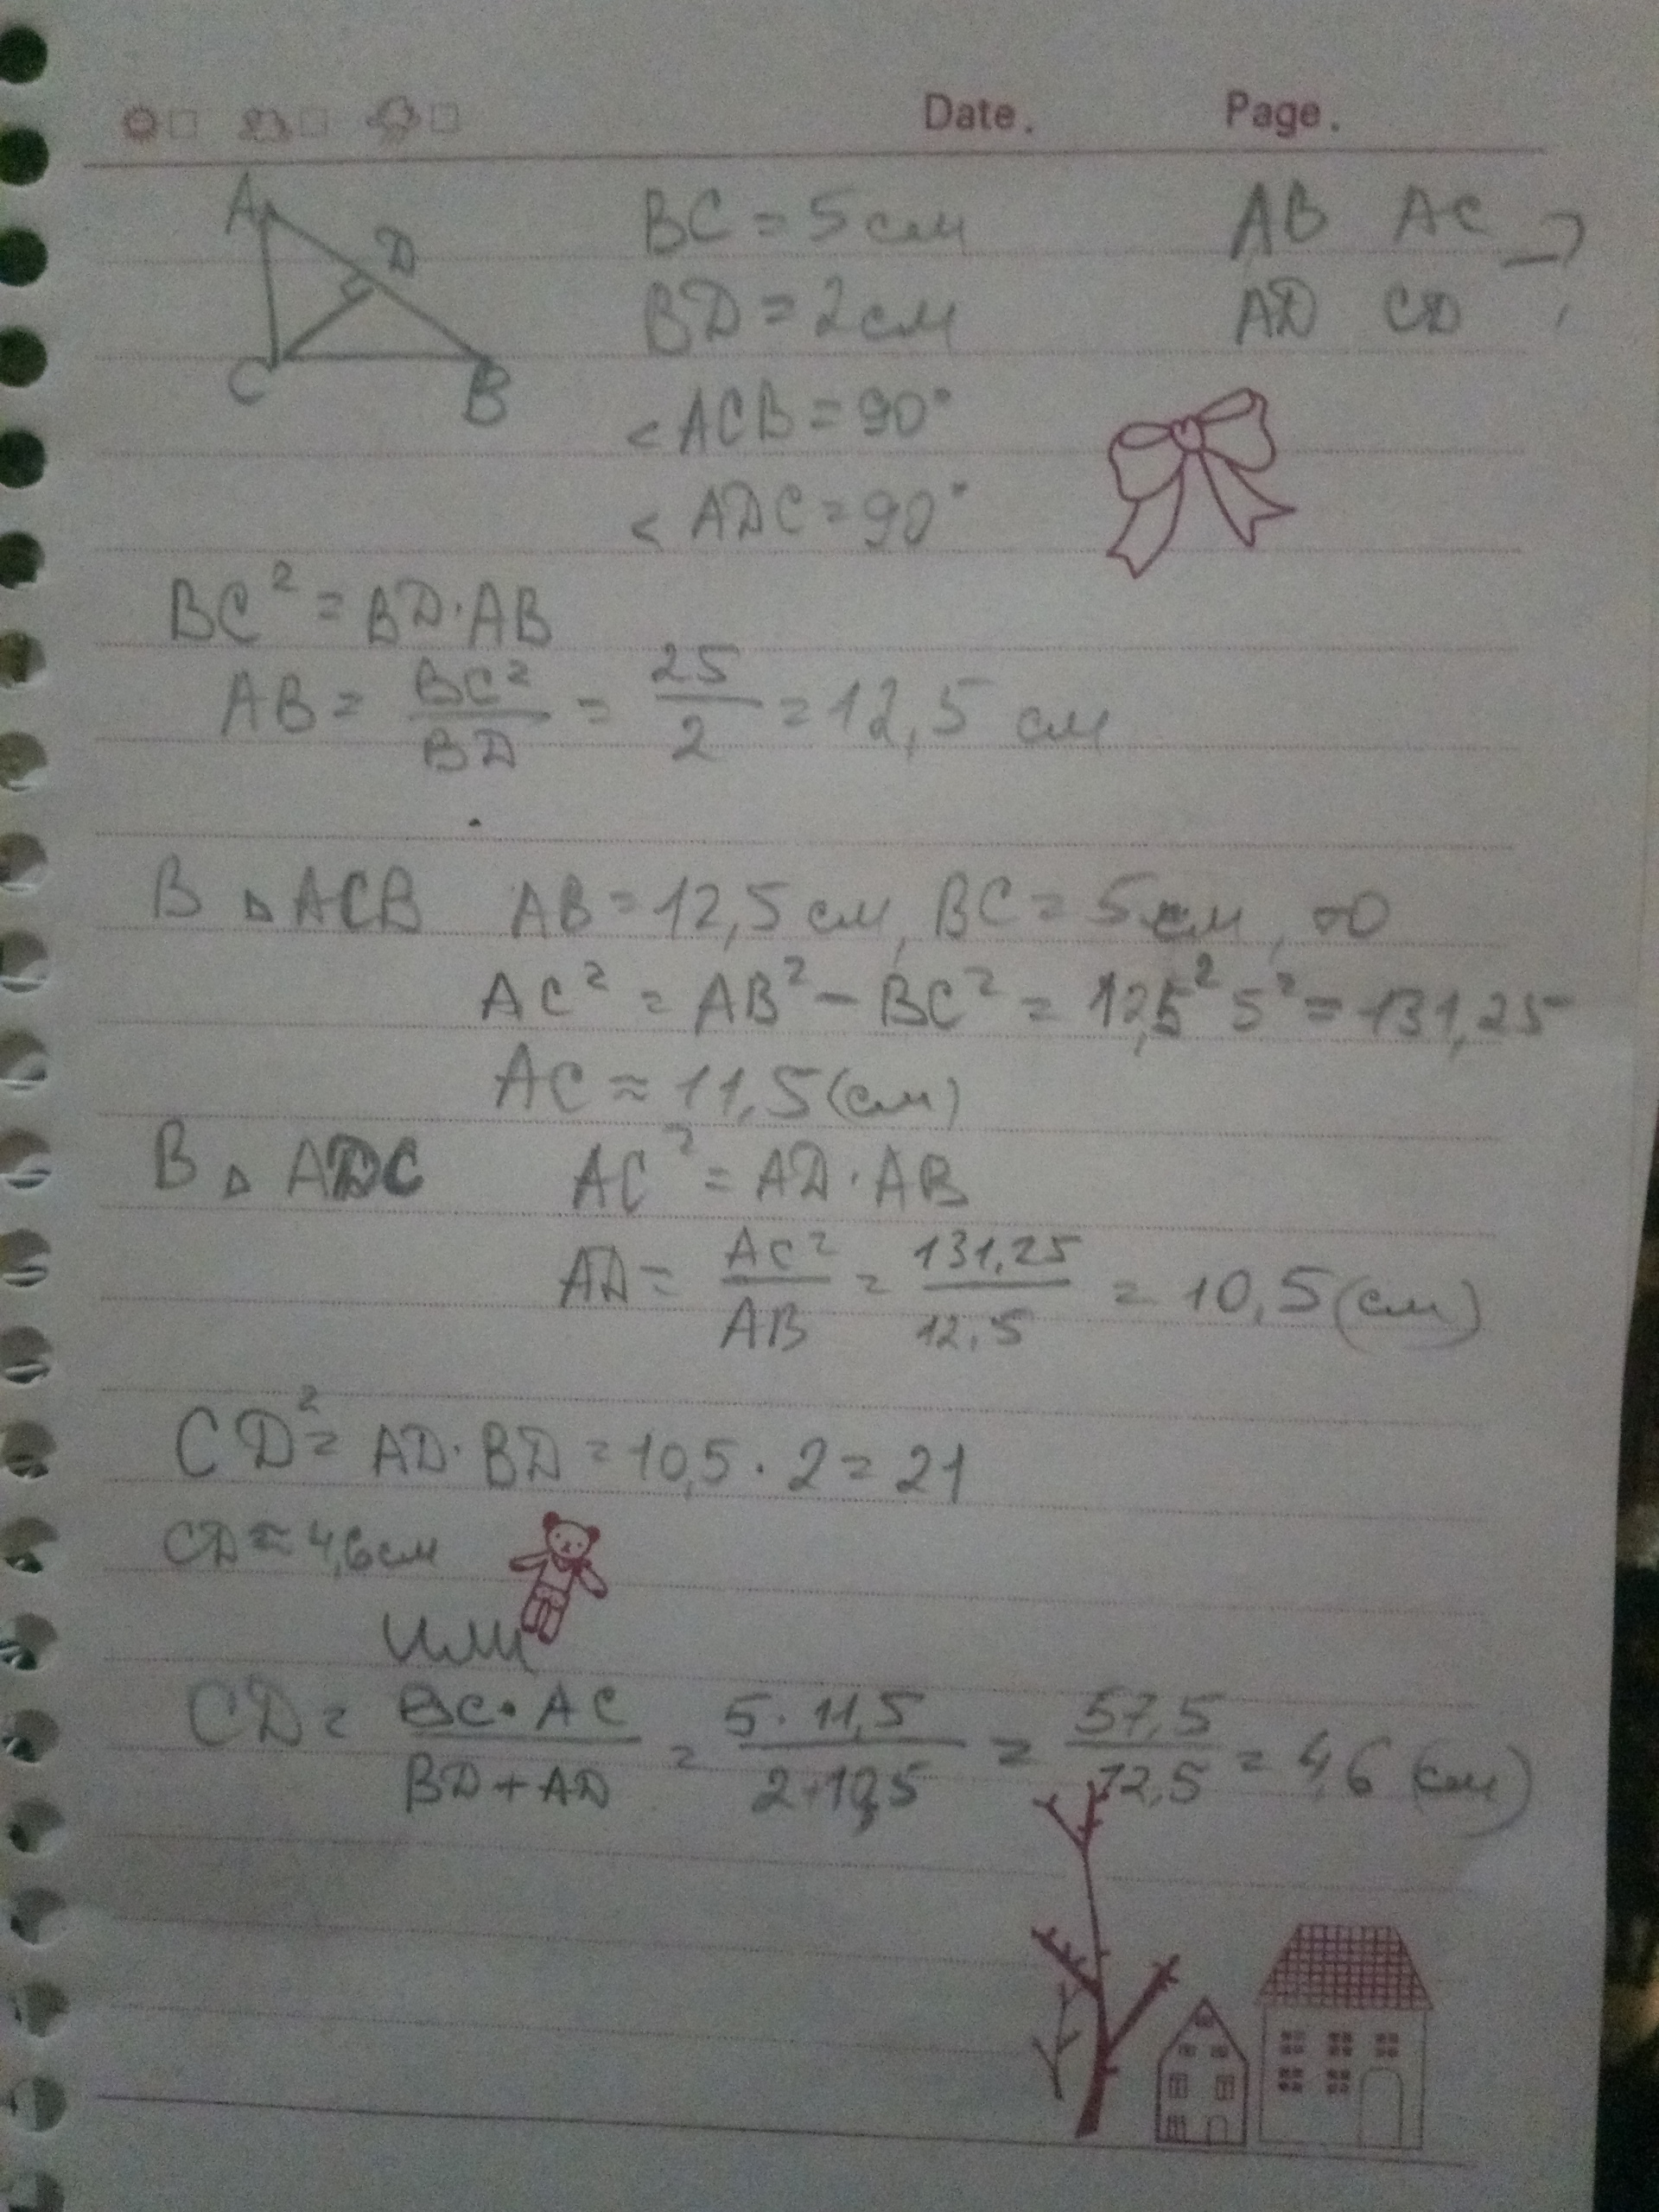 Date. Page.
A
D
C
B
BC = 5 см
AB AC
BD = 2 см
AD CD
– ?
< ACB = 90°
< ADC = 90°
BC² = BD · AB
AB = BC² / BD = 25 / 2 = 12,5 см
В △ ACB AB = 12,5 см, BC = 5 см, то
AC² = AB² – BC² = 12,5² 5² = 131,25
AC ≈ 11,5 (см)
В △ ADC AC² = AD · AB
AD = AC² / AB = 131,25 / 12,5 = 10,5 (см)
CD² = AD · BD = 10,5 · 2 = 21
CD ≈ 4,6 см
или
CD = BC · AC / BD + AD = 5 · 11,5 / 2 + 10,5 = 57,5 / 12,5 = 4,6 (см)